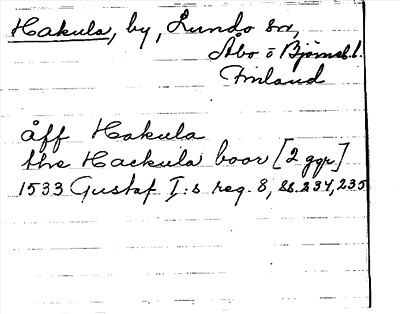 Hakula, by, Lundo sn,
Åbo o Björneb. l.
Finland
åff Hakula
the Hackula boor [2 ggr]
1533 Gustaf I:s reg. 8, ss. 234, 235